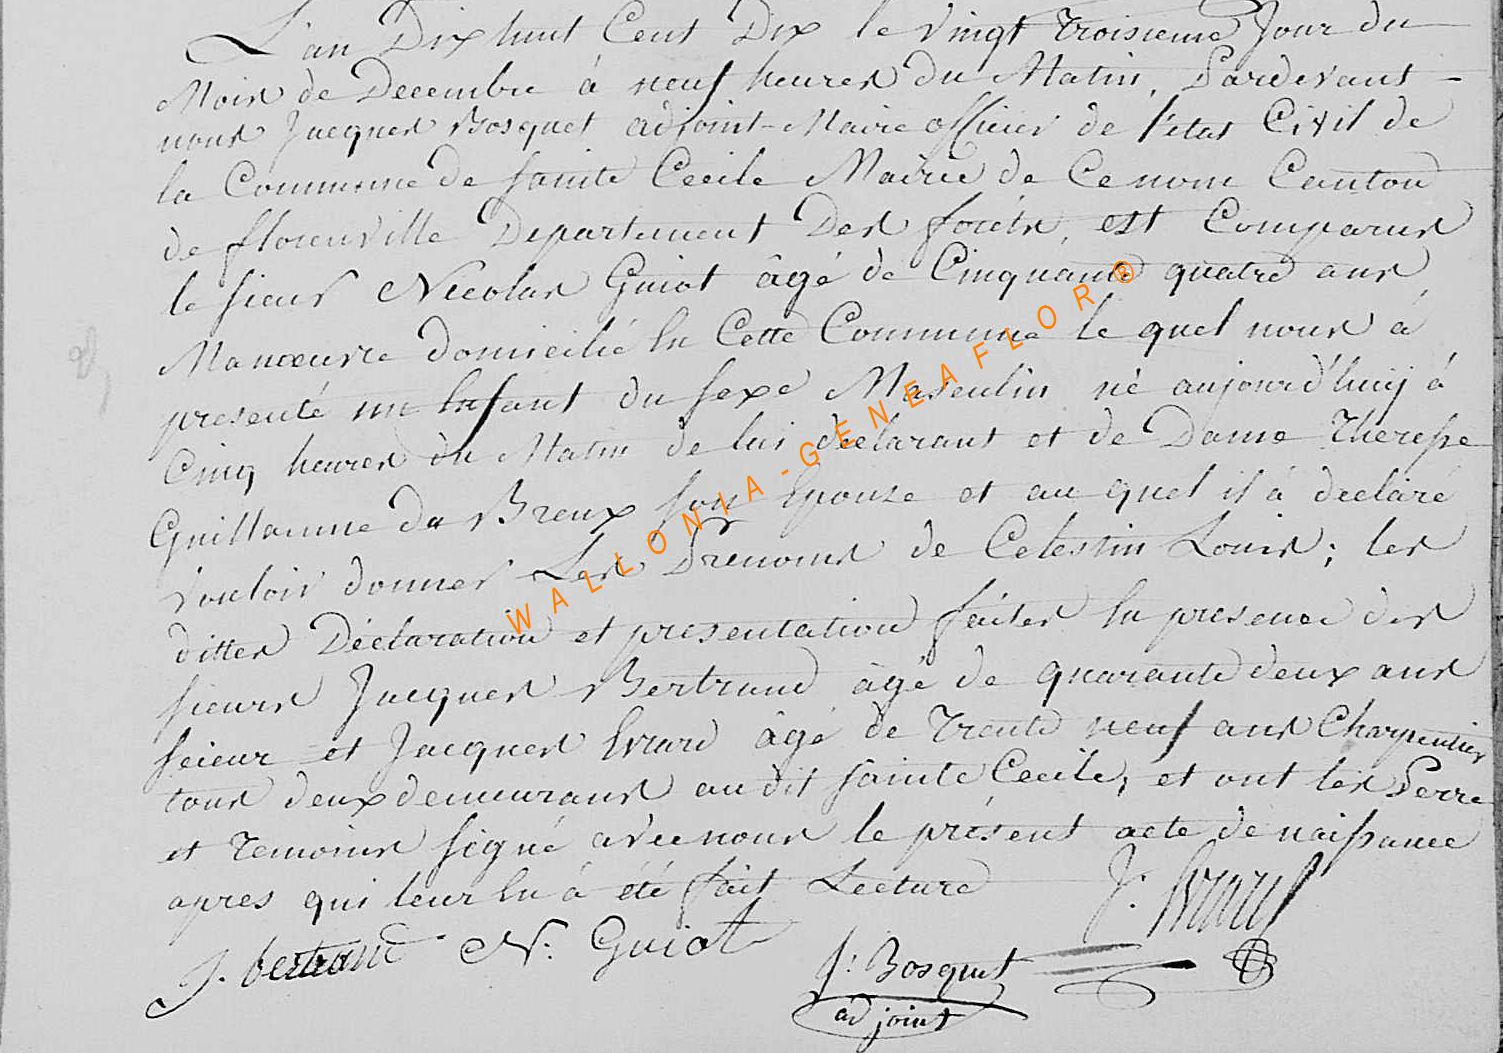 L'an Dix huit Cent Dix le vingt troisieme Jour du
Mois de Decembre à neuf heures du Matin, Pardevant -
nous Jacques Bosquet adjoint-Maire officier de l'etat Civil de
la Commune de Sainte Cecile Mairie de Ce nom Canton
de florenville Departement Des foréts, est Comparus
le sieur Nicolas Guiot âgé de Cinquante quatre ans,
Manœuvre domicilié En Cette Commune le quel nous à
presenté un Enfant du sexe Masculin né aujourd'huij à
Cinq heures du Matin de lui declarant et de Dame Theresse
Guillaume du Breux son Epouse et au quel il à declaré
vouloir donner Les Prenoms de Celestin Louis; les
dittes Déclaration et presentation faites En presence des
sieurs Jacques Bertrand âgé de quarante deux ans
scieur et Jacques Evrard âgé de Trente neuf ans Charpentier
tous deux demeurans au dit Sainte Cecile; et ont les Perre
et Temoins signé avec nous le présent acte de naissance
apres qui leur En à été fait Lecture
J: Evrard
J. bertrand N: Guiot
J: Bosquet
adjoint
WALLONIA-GENEAFLOR®